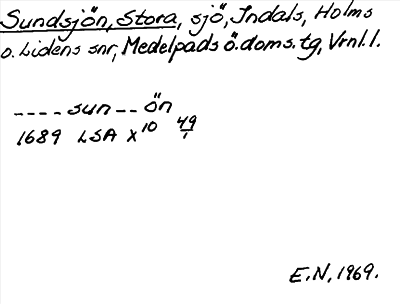 Sundsjön, Stora, sjö, Indals, Holms
o. Lidens snr, Medelpads ö. doms. tg, Vrnl. l.
---- sun -- ön
1689 LSA X 10 49/1
E.N. 1969.